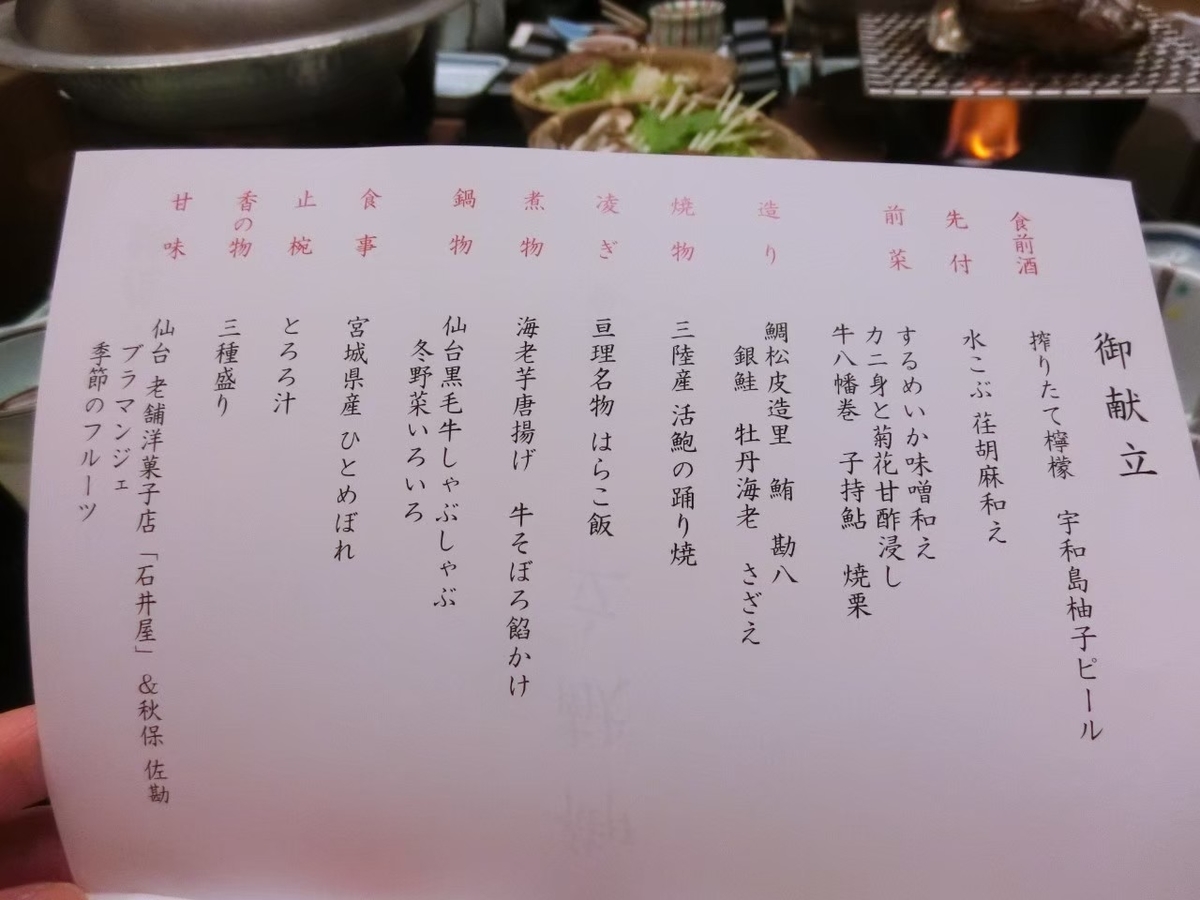 御献立
食前酒
搾りたて檸檬　宇和島柚子ピール
先付
水こぶ 荏胡麻和え
前菜
するめいか味噌和え
カニ身と菊花甘酢浸し
牛八幡巻　子持鮎　焼栗
造り
鯛松皮造里　鮪　勘八
銀鮭　牡丹海老　さざえ
焼物
三陸産 活鮑の踊り焼
凌ぎ
亘理名物 はらこ飯
煮物
海老芋唐揚げ　牛そぼろ餡かけ
鍋物
仙台黒毛牛しゃぶしゃぶ
冬野菜いろいろ
食事
宮城県産 ひとめぼれ
止椀
とろろ汁
香の物
三種盛り
甘味
仙台 老舗洋菓子店「石井屋」&秋保 佐勘
ブラマンジェ
季節のフルーツ